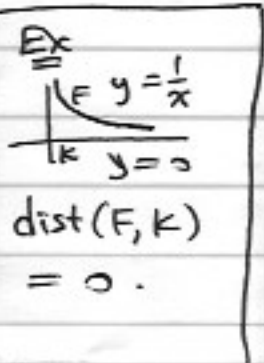 Ex
F y = 1/x
K y = 0
dist(F, K)
= 0.